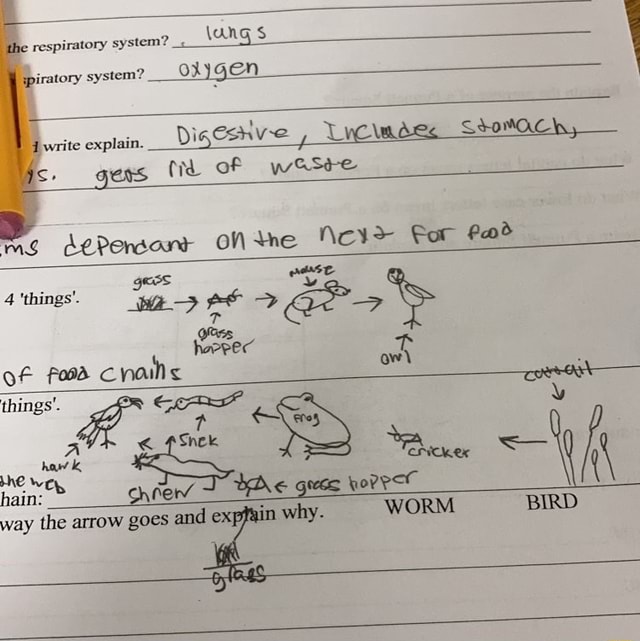 the respiratory system? lungs
piratory system? oxygen
write explain. Digestive, Includes stomach,
gets rid of waste
ms dependant on the next for food
grass mouse
4 'things'.
grass
hopper
owl
of food chains
cattail
things'.
Frog
Snek cricket
hawk
the web
shrew grass hopper
hain:
way the arrow goes and explain why. WORM BIRD
grass